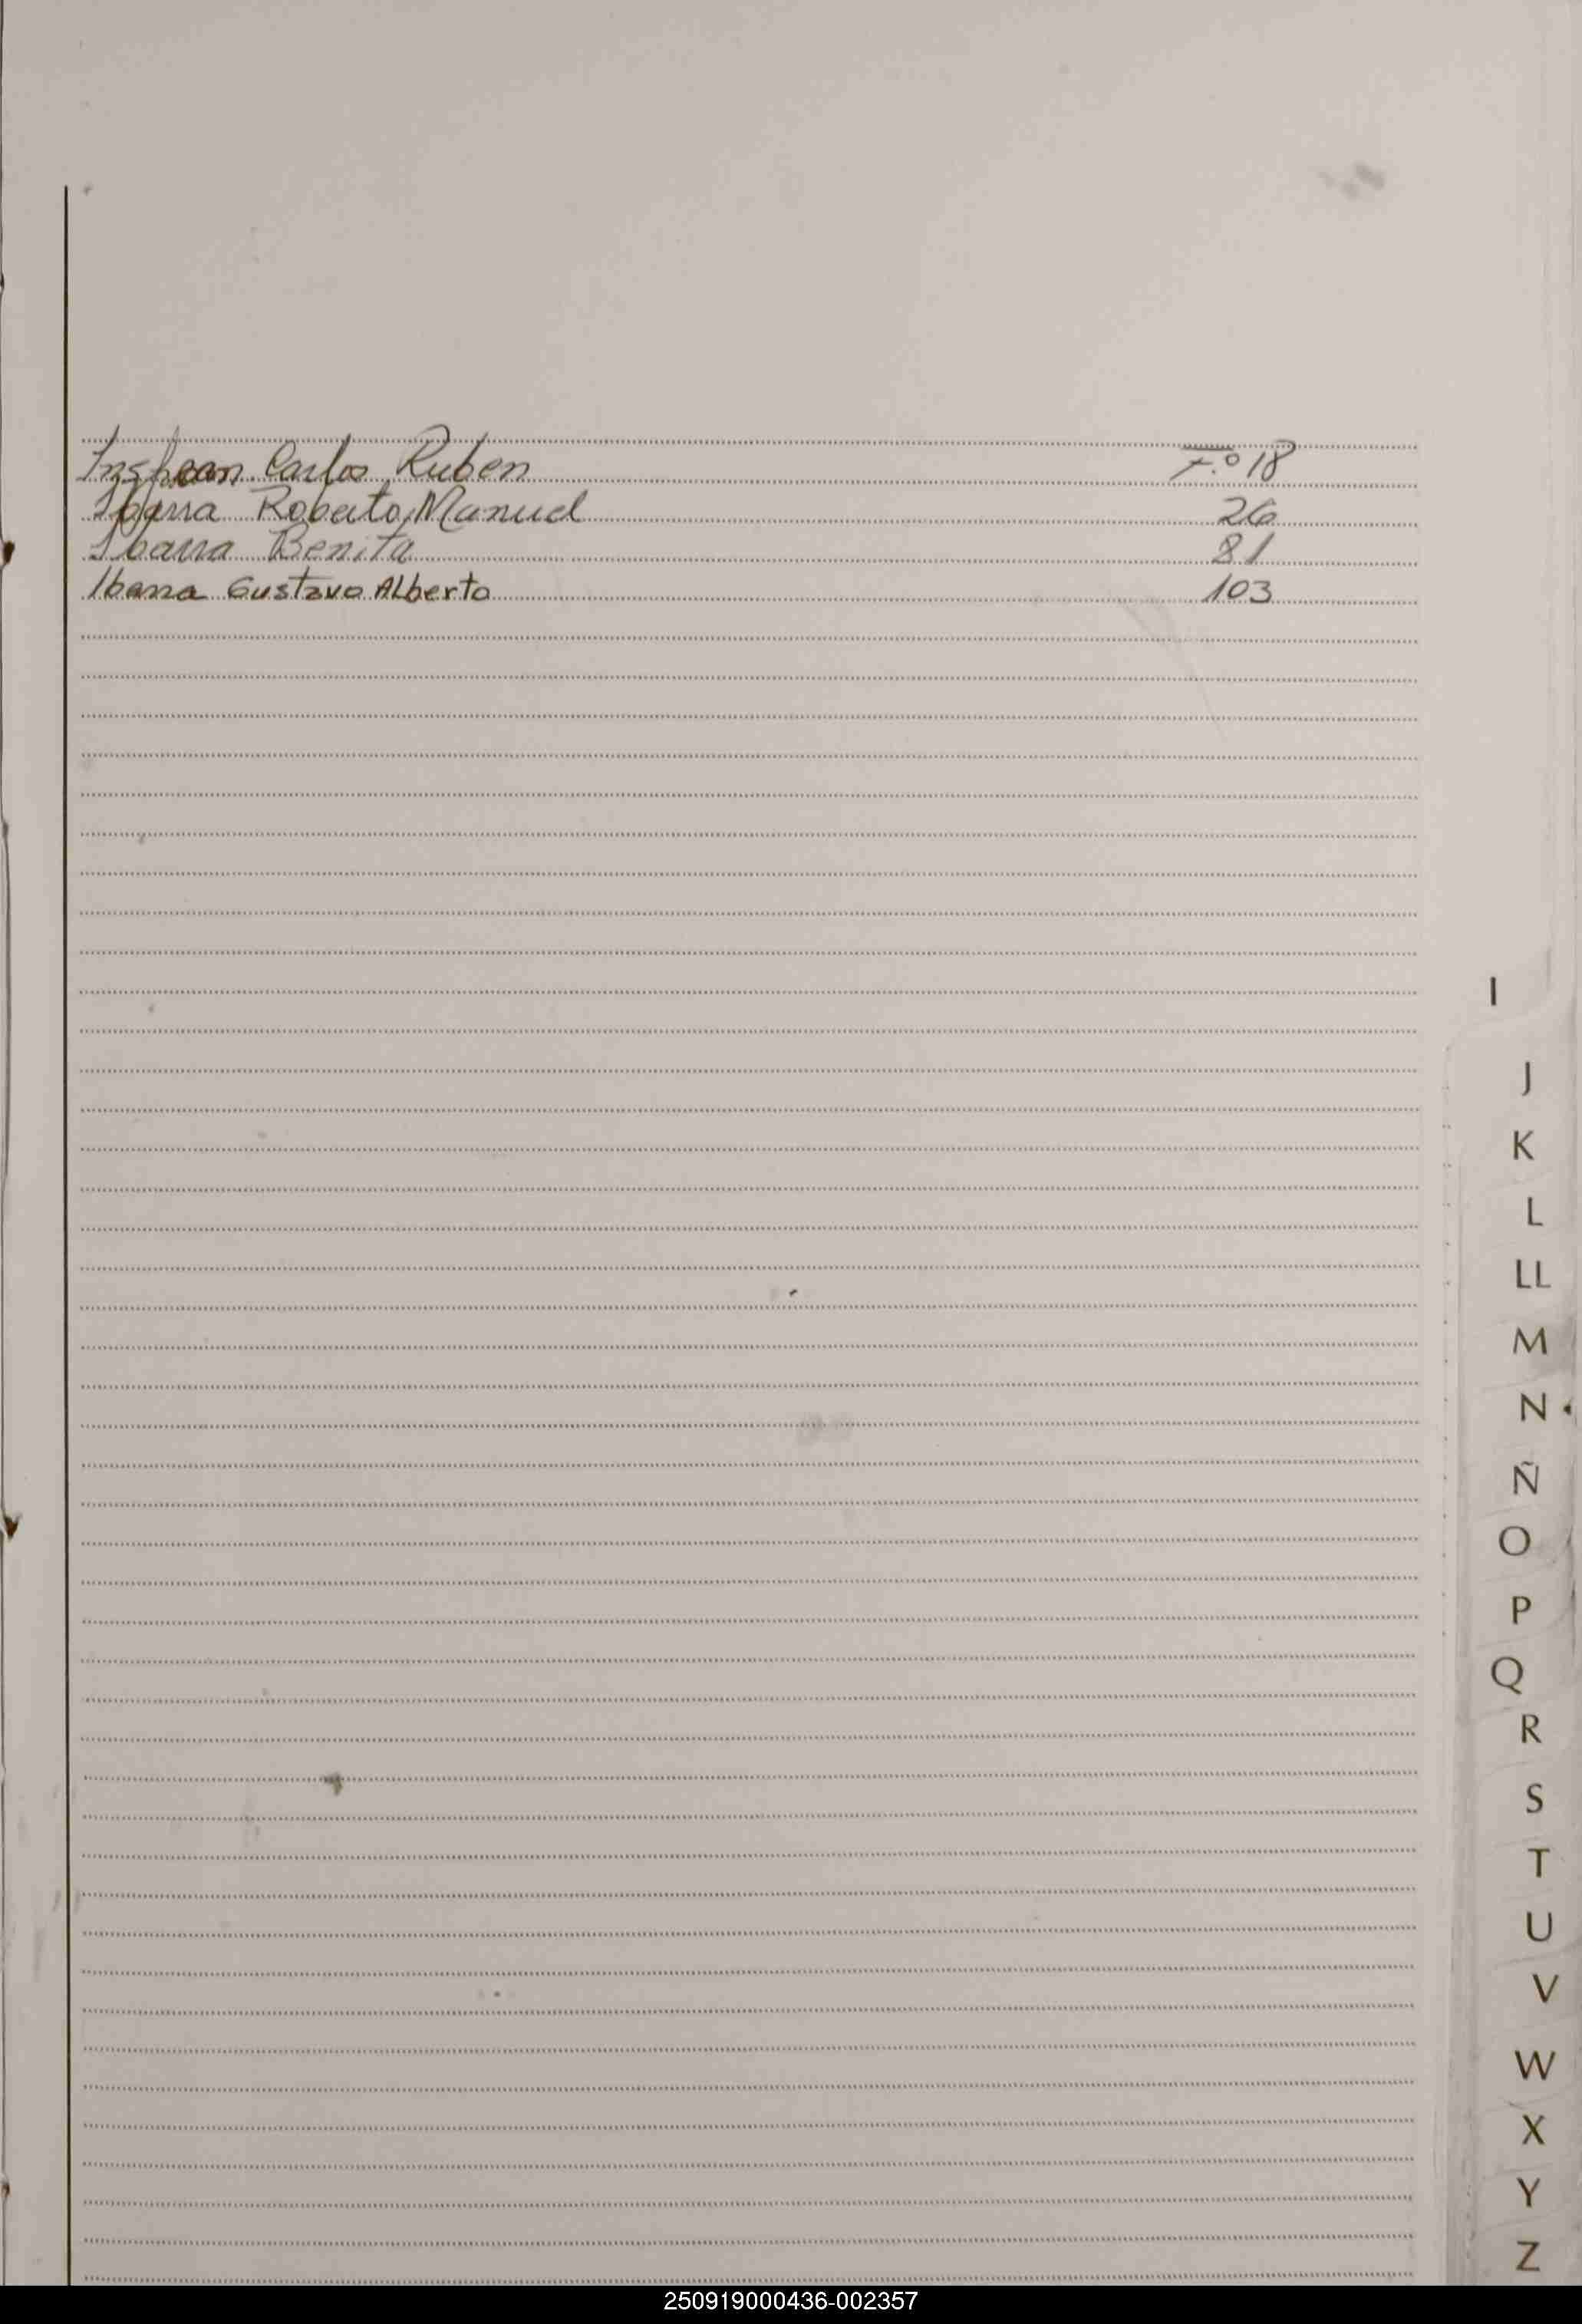 Carlos Ruben F.º 18
Ibarra Roberto Manuel 26
Ibarra Benita 81
Ibarra Gustavo ALberto 103
I
J
K
L
LL
M
N
Ñ
O
P
Q
R
S
T
U
V
W
X
Y
Z
250919000436-002357